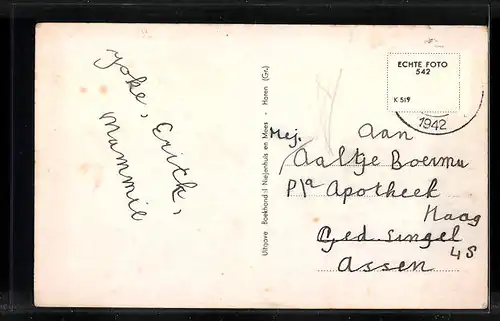 Joke, Erick,
Mammie
Uitgave Boekhandel Nieijenhuis en Meos - Haren (Gr.)
ECHTE FOTO
542
K 519
1942
Aan
Mej.
Aaltje Boerma
P/a Apotheek
Haag
Ged. Singel
45
Assen